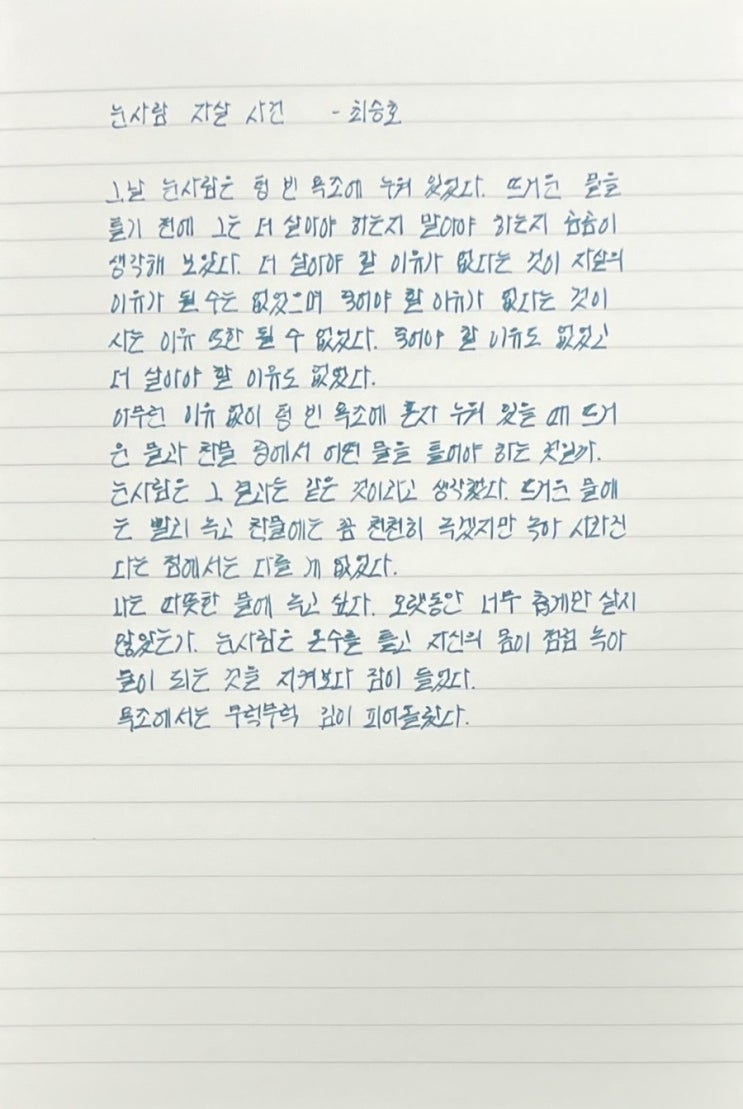 눈사람 자살 사건 - 최승호
그날 눈사람은 텅 빈 욕조에 누워 있었다. 뜨거운 물을
틀기 전에 그는 더 살아야 하는지 말아야 하는지 곰곰이
생각해 보았다. 더 살아야 할 이유가 없다는 것이 자살의
이유가 될 수는 없었으며 죽어야 할 이유가 없다는 것이
사는 이유 또한 될 수 없었다. 죽어야 할 이유도 없었고
더 살아야 할 이유도 없었다.
아무런 이유 없이 텅 빈 욕조에 혼자 누워 있을 때 뜨거
운 물과 찬물 중에서 어떤 물을 틀어야 하는 것일까.
눈사람은 그 결과는 같은 것이라고 생각했다. 뜨거운 물에
는 빨리 녹고 찬물에는 좀 천천히 녹겠지만 녹아 사라진
다는 점에서는 다를 게 없었다.
나는 따뜻한 물에 녹고 싶다. 오랫동안 너무 춥게만 살지
않았는가. 눈사람은 온수를 틀고 자신의 몸이 점점 녹아
물이 되는 것을 지켜보다 잠이 들었다.
욕조에서는 무럭무럭 김이 피어올랐다.